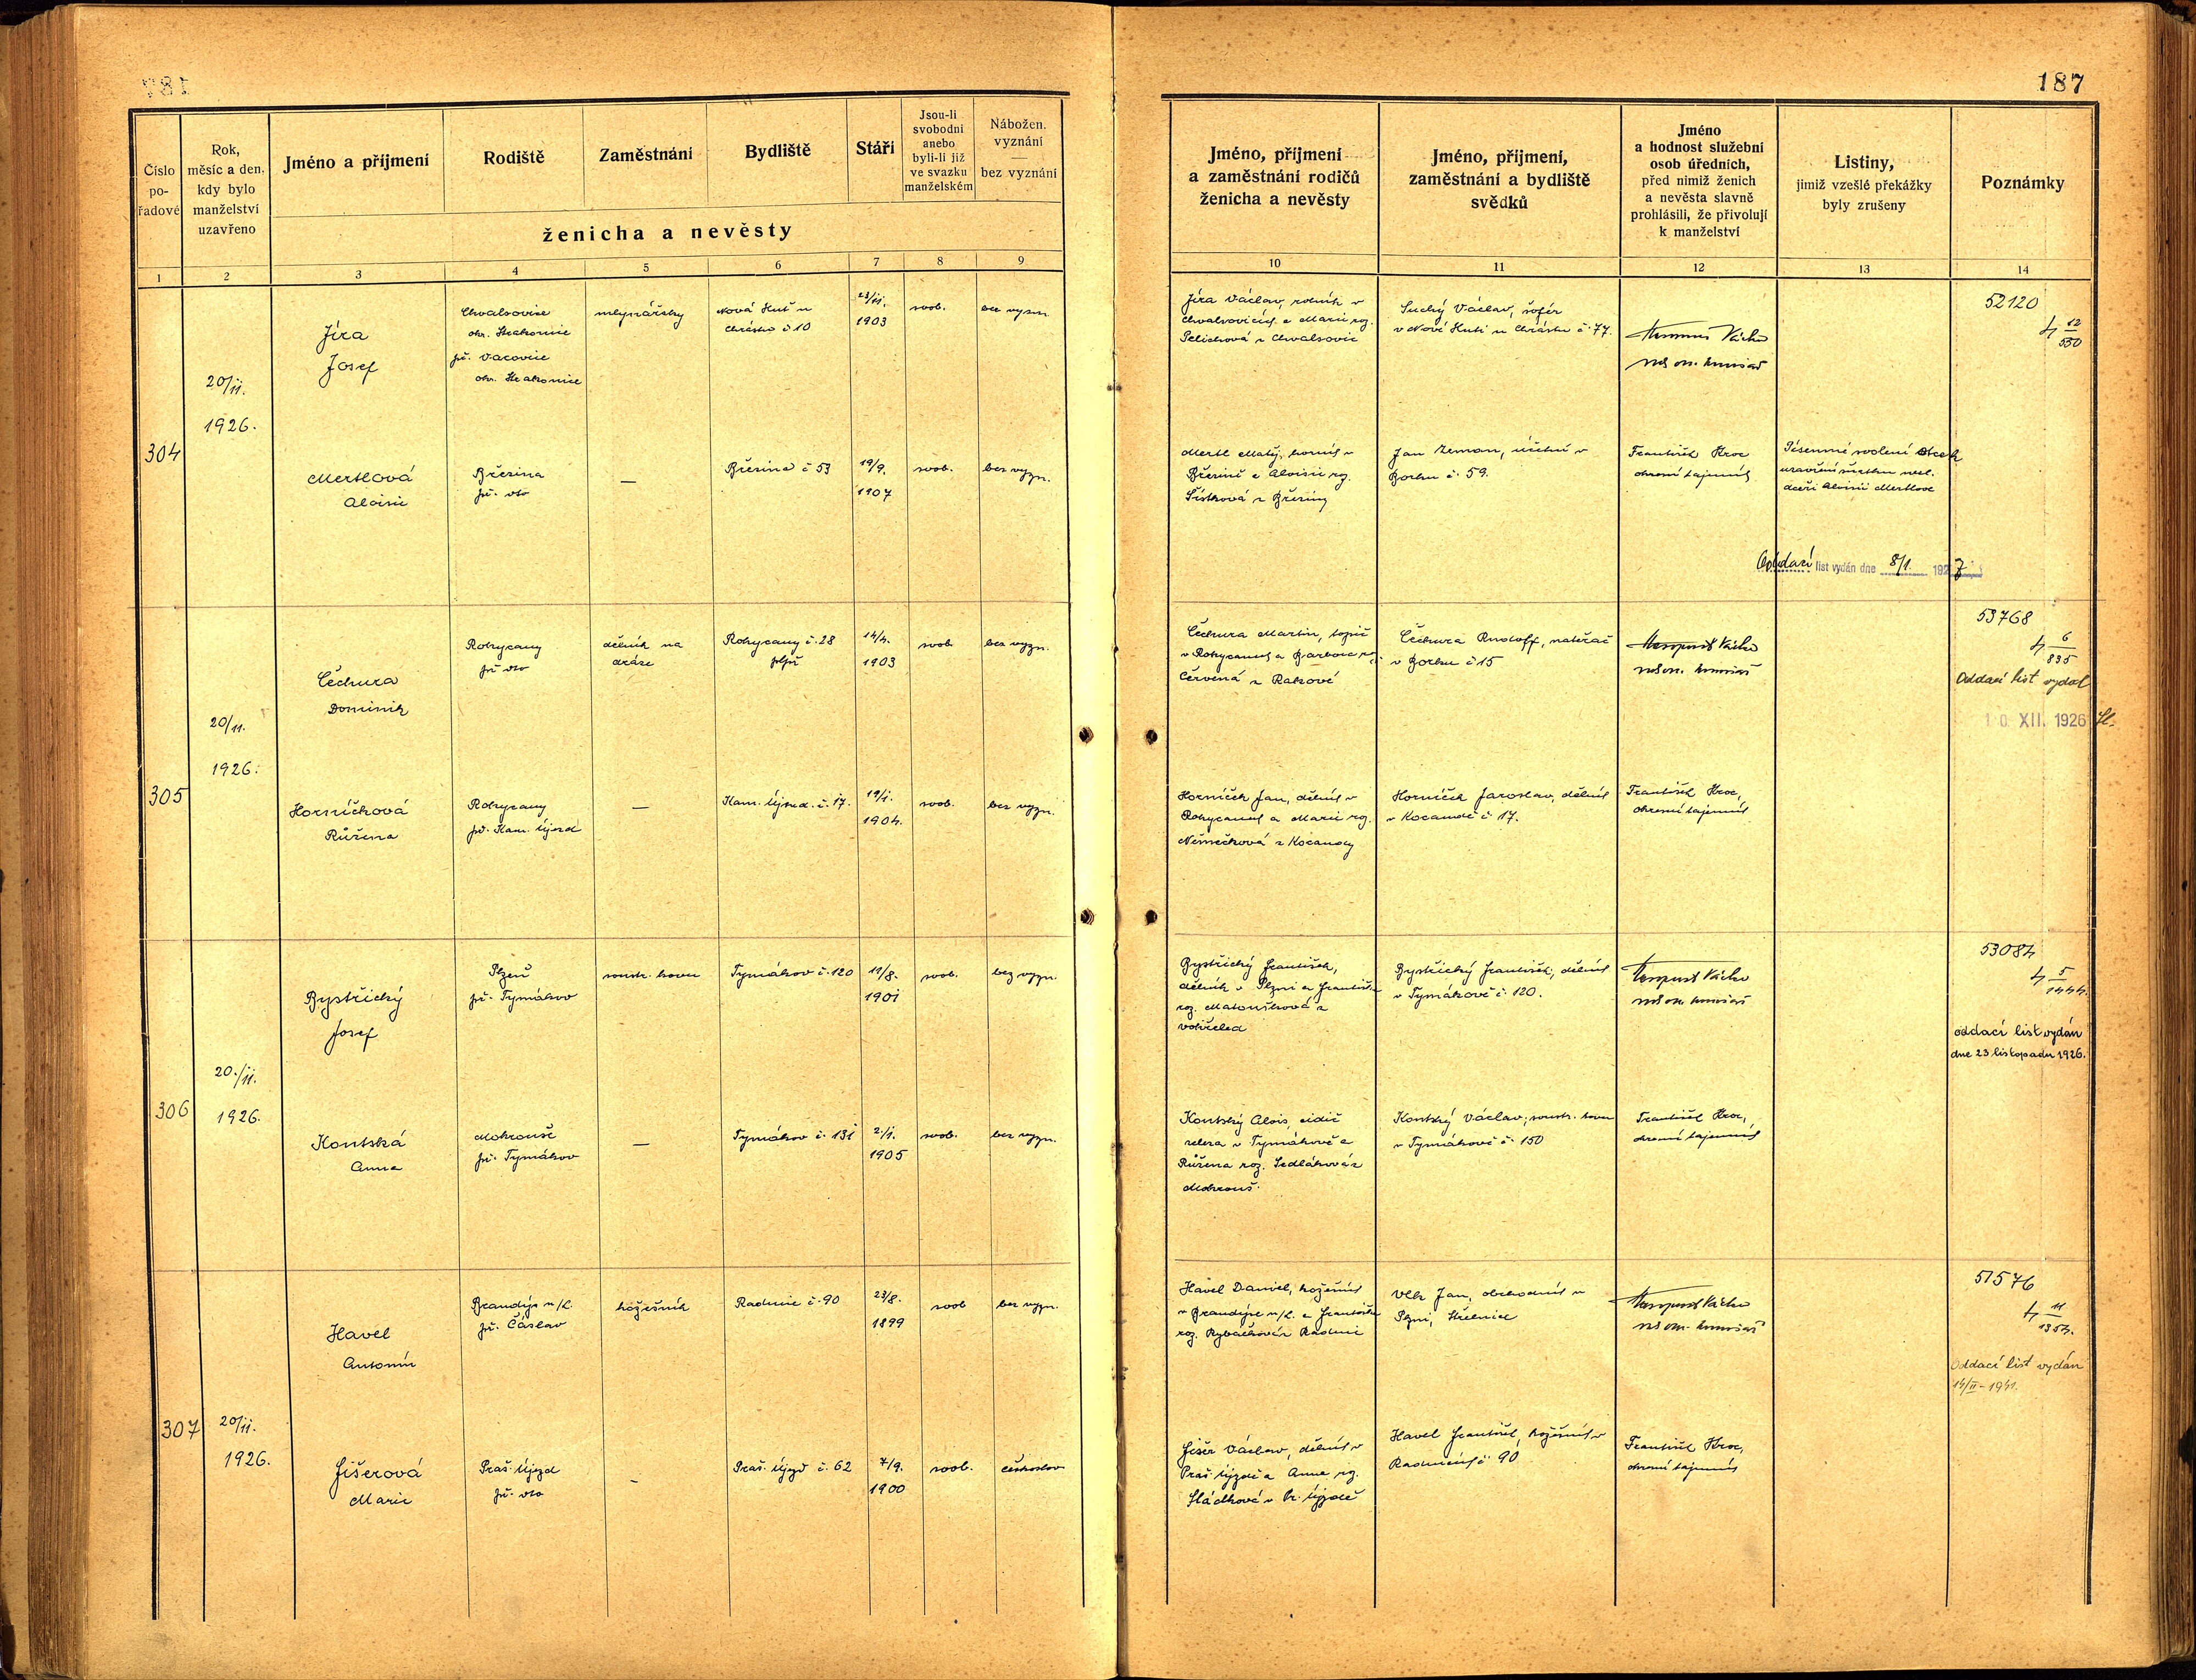 187
Číslo
po-
řadové
Rok,
měsíc a den,
kdy bylo
manželství
uzavřeno
Jméno a příjmení
Rodiště
Zaměstnání
Bydliště
Stáří
Jsou-li
svobodni
anebo
byli-li již
ve svazku
manželském
Nábožen.
vyznání
—
bez vyznání
ženicha a nevěsty
Jméno, příjmení
a zaměstnání rodičů
ženicha a nevěsty
Jméno, příjmení,
zaměstnání a bydliště
svědků
Jméno
a hodnost služební
osob úředních,
před nimiž ženich
a nevěsta slavně
prohlásili, že přivolují
k manželství
Listiny,
jimiž vzešlé překážky
byly zrušeny
Poznámky
1 2 3 4 5 6 7 8 9 10 11 12 13 14
304
20/11.
1926.
Jíra
Josef
Chvalšovice
okr. Strakonice
př. Vacovice
okr. Strakonice
mlynářský
Nová Huť u
Chrástu č 10
23/11.
1903
svob.
bez vyzn.
Jíra Václav, rolník v
Chvalšovicích a Marie roz.
z Chvalšovic
Suchý Václav, šofér
v Nové Huti u Chrástu č. 77.
52120
4 12/550
Mertlová
Aloisie
Březina
př. vto
—
Březina č 53
19/9.
1907
svob.
bez vyzn.
Mertl Matěj, horník v
Březině a Aloisie roz.
Šístková z Březiny
Jan Zeman, účetní v
Borku č. 59.
František Kroc
okresní tajemník
Písemné svolení otce k
uzavření sňatku nezl.
dceři Aloisii Mertlové
Oddací list vydán dne 8/1. 1927
305
20/11.
1926.
Čechura
Dominik
Rokycany
př vto
dělník na
dráze
Rokycany č. 28
14/4.
1903
svob
bez vyzn.
Čechura Martin, topič
v Rokycanech a Barbora roz.
Červená z Rakové
Čechura Rudolf, natěrač
v Borku č 15
53768
4 6/835
Oddací list vydal
10. XII. 1926
Horníčková
Růžena
Rokycany
př. Kam. Újezd
—
Kam. Újezd. č. 17.
19/1.
1904.
svob.
bez vyzn.
Horníček Jan, dělník v
Rokycanech a Marie roz.
Němečková z Kocandy
Horníček Jaroslav, dělník
v Kocandě č 17.
František Kroc,
okresní tajemník
306
20./11.
1926.
Bystřický
Josef
Plzeň
př. Tymákov
soustr. kovu
Tymákov č. 120
11/8.
1901
svob.
bez vyzn.
Bystřický František,
dělník v Plzni a Františka
roz. Matoušková z
Bystřický František, dělník
v Tymákově č. 120.
53084
4 5/1444.
oddací list vydán
dne 23 listopadu 1926.
Kontská
Anna
Mokrouše
př. Tymákov
—
Tymákov č. 131
2/1.
1905
svob.
bez vyzn.
Kontský Alois, řidič
v Tymákově a
Růžena roz. Sedláková z
Mokrouš.
Kontský Václav, soustr. kovu
v Tymákově č. 150
František Kroc,
okresní tajemník
307
20/11.
1926.
Havel
Antonín
Brandýs n/L.
př. Čáslav
kožešník
Radnice č. 90
23/8.
1899
svob
bez vyzn.
Havel Daniel, kožešník
v Brandýse n/L. a Františka
roz. Rybáčková z Radnic
Vlk Jan, obchodník v
Plzni, Střelnice
51576
4 11/1354.
Oddací list vydán
14/II-1941.
Jišerová
Marie
Praš. Újezd
př. vto
-
Praš. Újezd č. 62
7/9.
1900
svob.
českoslov
Jišer Václav, dělník v
Praš. Újezdě a Anna roz.
Sládková v Pr. Újezdě
Havel František, kožešník v
Radnicích č 90
František Kroc,
okresní tajemník